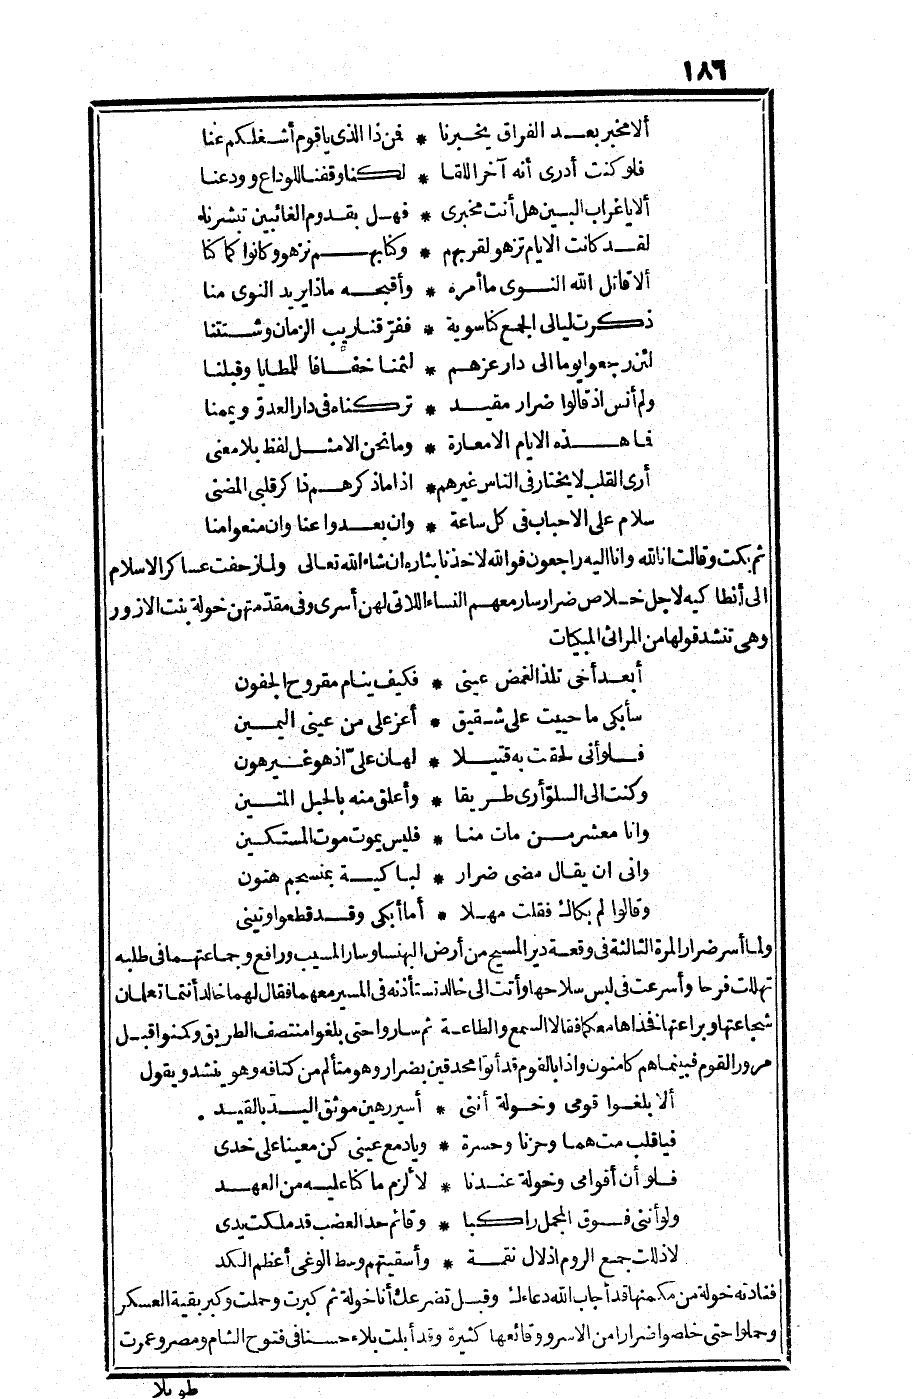 ١٨٦
ألا مخبر بعد الفراق يخبرنا * فمن ذا الذى ياقوم أشغلكم عنا
فلو كنت أدرى أنه آخر اللقا * لكنا وقفنا للوداع وودعنا
ألا ياغراب البين هل أنت مخبرى * فهل بقدوم الغائبين تبشرنا
لقد كانت الايام تزهو لقربهم * وكنا بهم نزهو وكانوا كما كنا
ألا قاتل الله النوى ما أمره * وأقبحه ماذا يريد النوى منا
ذكرت ليالى الجمع كنا سوية * ففرقنا ريب الزمان وشتتنا
لئن رجعوا يوما الى دار عزهم * لثمنا خفافا للمطايا وقبلنا
ولم أنس اذ قالوا ضرار مقيد * تركناه فى دار العدو ويممنا
فما هذه الايام الا معارة * وما نحن الا مثل لفظ بلا معنى
أرى القلب لا يختار فى الناس غيرهم * اذا ما ذكرهم ذاكر قلبى المضنى
سلام على الاحباب فى كل ساعة * وان بعدوا عنا وان منعوا منا
ثم بكت وقالت انا لله وانا اليه راجعون فوالله لاخذنا بثاره ان شاء الله تعالى ولما زحفت عساكر الاسلام
الى أنطاكيه لاجل خلاص ضرار سار معهم النساء اللاتى لهن أسرى وفى مقدمتهن خولة بنت الازور
وهى تنشد قولها من المراثى المبكات
أبعد أخى تلذ الغمض عينى * فكيف ينام مقروح الجفون
سأبكى ما حييت على شقيق * أعز على من عينى اليمين
فلو أنى لحقت به قتيلا * لهان على اذ هو غير هون
وكنت الى السلو أرى طريقا * وأعلق منه بالحبل المتين
وانا معشر من مات منا * فليس يموت موت المستكين
وانى ان يقال مضى ضرار * لباكية بمنسجم هتون
وقالوا لم بكاك فقلت مهلا * أما أبكى وقد قطعوا وتينى
ولما أسر ضرار المرة الثالثة فى وقعة دير المسيح من أرض البهنسا وسار المسيب ورافع وجماعتهما فى طلبه
تهللت فرحا وأسرعت فى لبس سلاحها وأتت الى خالد تستأذنه فى المسير معهما فقال لهما خالد أنتما تعلمان
شجاعتها وبراعتها فخذاها معكما فقالا السمع والطاعة ثم ساروا حتى بلغوا منتصف الطريق وكمنوا قبل
مرور القوم فبينما هم كامنون واذا بالقوم قد أتوا محدقين بضرار وهو متألم من كتافه وهو ينشد ويقول
ألا بلغوا قومى وخولة أننى * أسير رهين موثق اليد بالقيد
فياقلب مت هما وحزنا وحسرة * ويادمع عينى كن معينا على خدى
فلو أن أقوامى وخولة عندنا * لألزم ما كنا عليه من العهد
ولو أننى فوق المحجل راكبا * وقائم حد العضب قد ملكت يدى
لاذللت جمع الروم اذلال نقمة * وأسقيتهم وسط الوغى أعظم الكد
فنادته خولة من مكمنها قد أجاب الله دعاءك وقبل تضرعك أنا خولة ثم كبرت وحملت وكبر بقية العسكر
وحملوا حتى خلصوا ضرارا من الاسر ووقائعها كثيرة وقد أبلت بلاء حسنا فى فتوح الشام ومصر وعمرت
طويلا